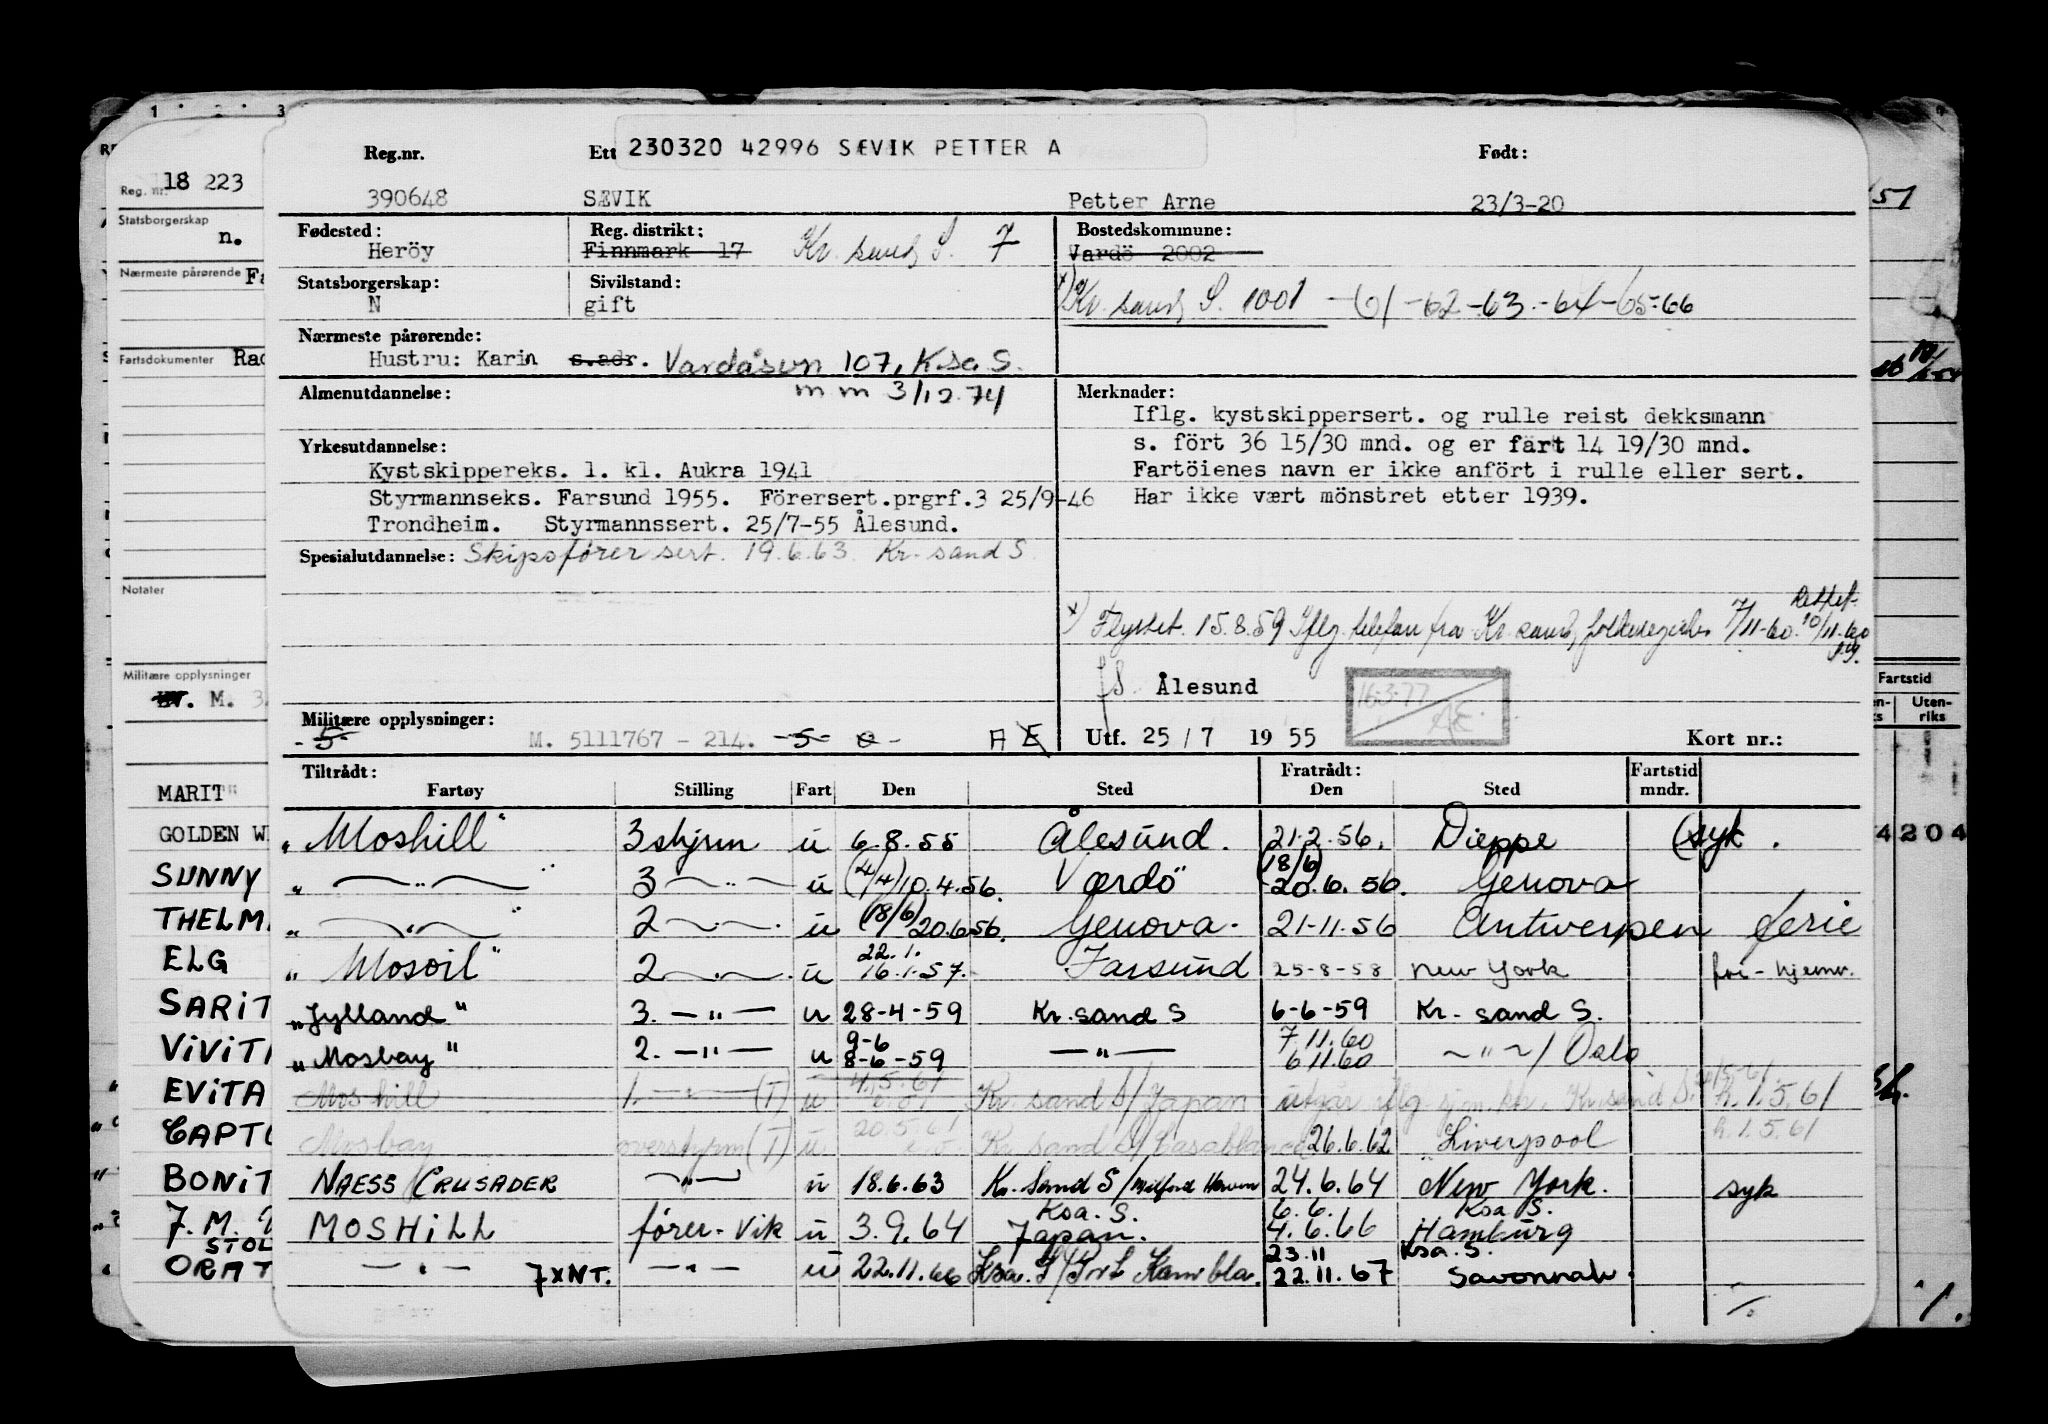 1 2 3
Reg.nr. Ett 230320 42996 SÆVIK PETTER A Født:
390648 SÆVIK Petter Arne 23/3-20
Fødested: Reg. distrikt: Bostedskommune:
Heröy Finnmark 17 Kr. sand S. 7 Vardö 2002
Statsborgerskap: Sivilstand:
N gift x) Kr. sand S. 1001 -61-62-63-64-65-66
Nærmeste pårørende:
Hustru: Karin s.adr. Vardåsvn 107, K.sa. S.
mm 3/12.74
Almenutdannelse: Merknader:
Iflg. kystskippersert. og rulle reist dekksmann
Yrkesutdannelse: s. fört 36 15/30 mnd. og er färt 14 19/30 mnd.
Kystskippereks. 1. kl. Aukra 1941 Fartöienes navn er ikke anfört i rulle eller sert.
Styrmannseks. Farsund 1955. Förersert.prgrf.3 25/9-46 Har ikke vært mönstret etter 1939.
Trondheim. Styrmannssert. 25/7-55 Ålesund.
Spesialutdannelse: Skipsfører sert. 19.6.63. Kr. sand S.
x) Flyttet 15.8.59 Iflg. telefon fra Kr. sand, folkeregister 7/11-60. Rettet 10/11-60
Ålesund 16.3.77
Militære opplysninger:
- 5 - M. 5111767 - 214. -5- 0 - A E Utf. 25 / 7 19 55 Kort nr.:
Tiltrådt: Fratrådt: Fartstid
Fartøy Stilling Fart Den Sted Den Sted mndr.
"Moshill" 3 styrm u 6.8.55 Ålesund. 21.2.56. Dieppe (syk.
" —"— 3 —"— u (4/4) 10.4.56. Værdö (18/6) 20.6.56. Genova
" —"— 2 —"— u (18/6) 20.6.56. Genova. 21-11-56 Antwerpen ferie
"Mosoil" 2 —"— u 22.1. 16.1.57. Farsund 25-8-58 New York fri - hjemr.
"Jylland" 3. —"— u 28-4-59 Kr. sand S 6-6-59 Kr. sand S.
"Mosbay" 2. —"— u 9-6 8-6-59 —"— 7.11.60 6 11.60 —"—/Oslo
Moshill 1. —"— (T) u 4.5.61 Kr. sand S/Japan utgår iflg Kr. sand S. h. 1.5.61
Mosbay overstyrm (T) u 20.5.61 Kr. sand S/Casablanca 26.6.62 Liverpool h. 1.5.61
NAESS CRUSADER —"— u 18.6.63 Kr. Sand S/Milford Haven 24.6.64 New York. syk
MOSHILL fører-vik u 3.9.64 Ksa. S. Japan. 6.6. 4.6.66 Ksa. S. Hamburg
—"— 7XNT. —"— u 22.11.66 23.11 22.11.67 Ksa. S. Savonnah.
Reg. nr. 18 223
Statsborgerskap
n.
Nærmeste pårørende
Fartsdokumenter
Notater
Militære opplysninger
M.
MARIT"
GOLDEN
SUNNY
THELM
ELG
SARIT
VIVIT
EVITA
CAPT
BONIT
J. M.
STOL
ORAT
51
Fartstid
Uten-
riks
4204